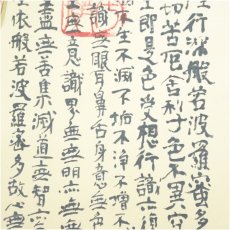 行深般若波羅蜜多
切苦厄舍利子色不異空
即是色受想行識亦復
不生不滅不垢不淨不增
識無眼耳鼻舌身意無色
至無意識界無無明亦無無
無苦集滅道無智亦
依般若波羅蜜多故心